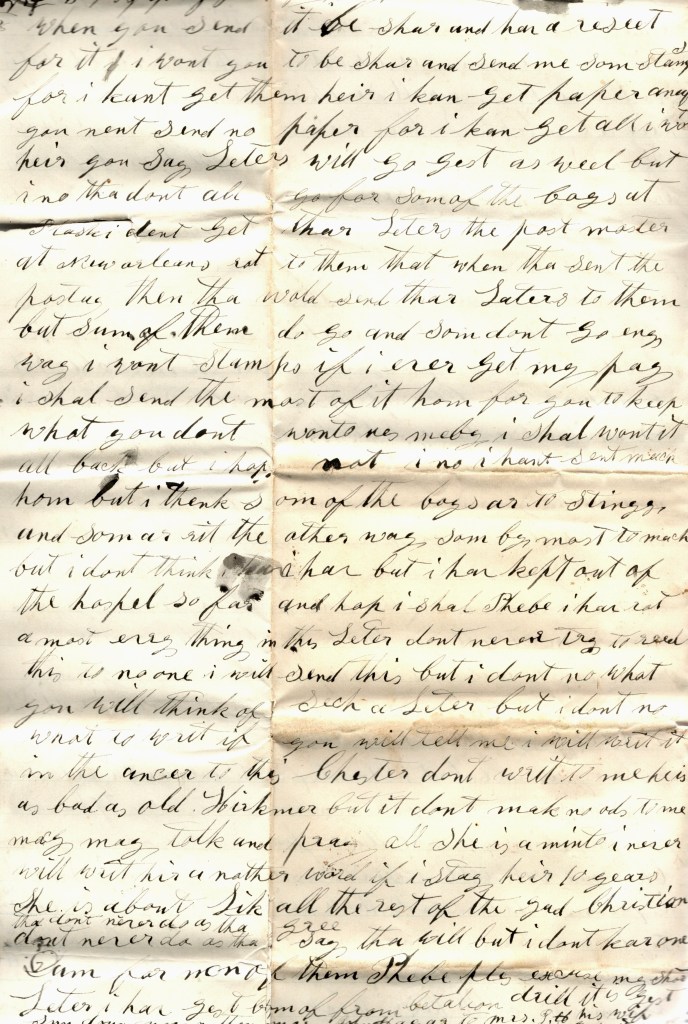 when you send it be shar and har a reseet
for it i wont you to be shar and send me som stamps
for i kant get them heir i kan get paper anuf
you nent send no paper for i kan get all i wont
heir you say Leters will go gest as well but
i no tha dont all go for som of the boys at
dent get thar Leters the post master
at New orleans rot to them that when tha sent the
postag then tha wold send thar Laters to them
but sum of them do go and som dont go eny
way i wont stamps if i ever get my pay
i shal send the most of it hom for you to keep
what you dont wont to use meby i shal wont it
all back but i hop not i no i hant sent much
hom but i thenk som of the boys ar to stingy
and som ar rit the other way som by most to much
but i dont think i har but i har kept out of
the hospel so far and hop i shal Phebe i har rot
a most erry thing in this Leter dont never try to reed
this to no one i will send this but i dont no what
you will think of sich a Leter but i dont no
what to writ if you will tell me i will writ it
in the ancer to this Chester dont writ to me he is
as bad as old but it dont mak no ods to me
may may tolk and pray all she is a minto i never
will writ hir a nother word if i stay heir 10 years
she is about Lik all the rest of the gud Christian
tha dont never do as tha gree
dont never do as tha say tha will but i dont kar one
Cum for non of them Phebe pls excuse my short
Leter i har gest com of from betaleon drill it is gest
to mrs his wif